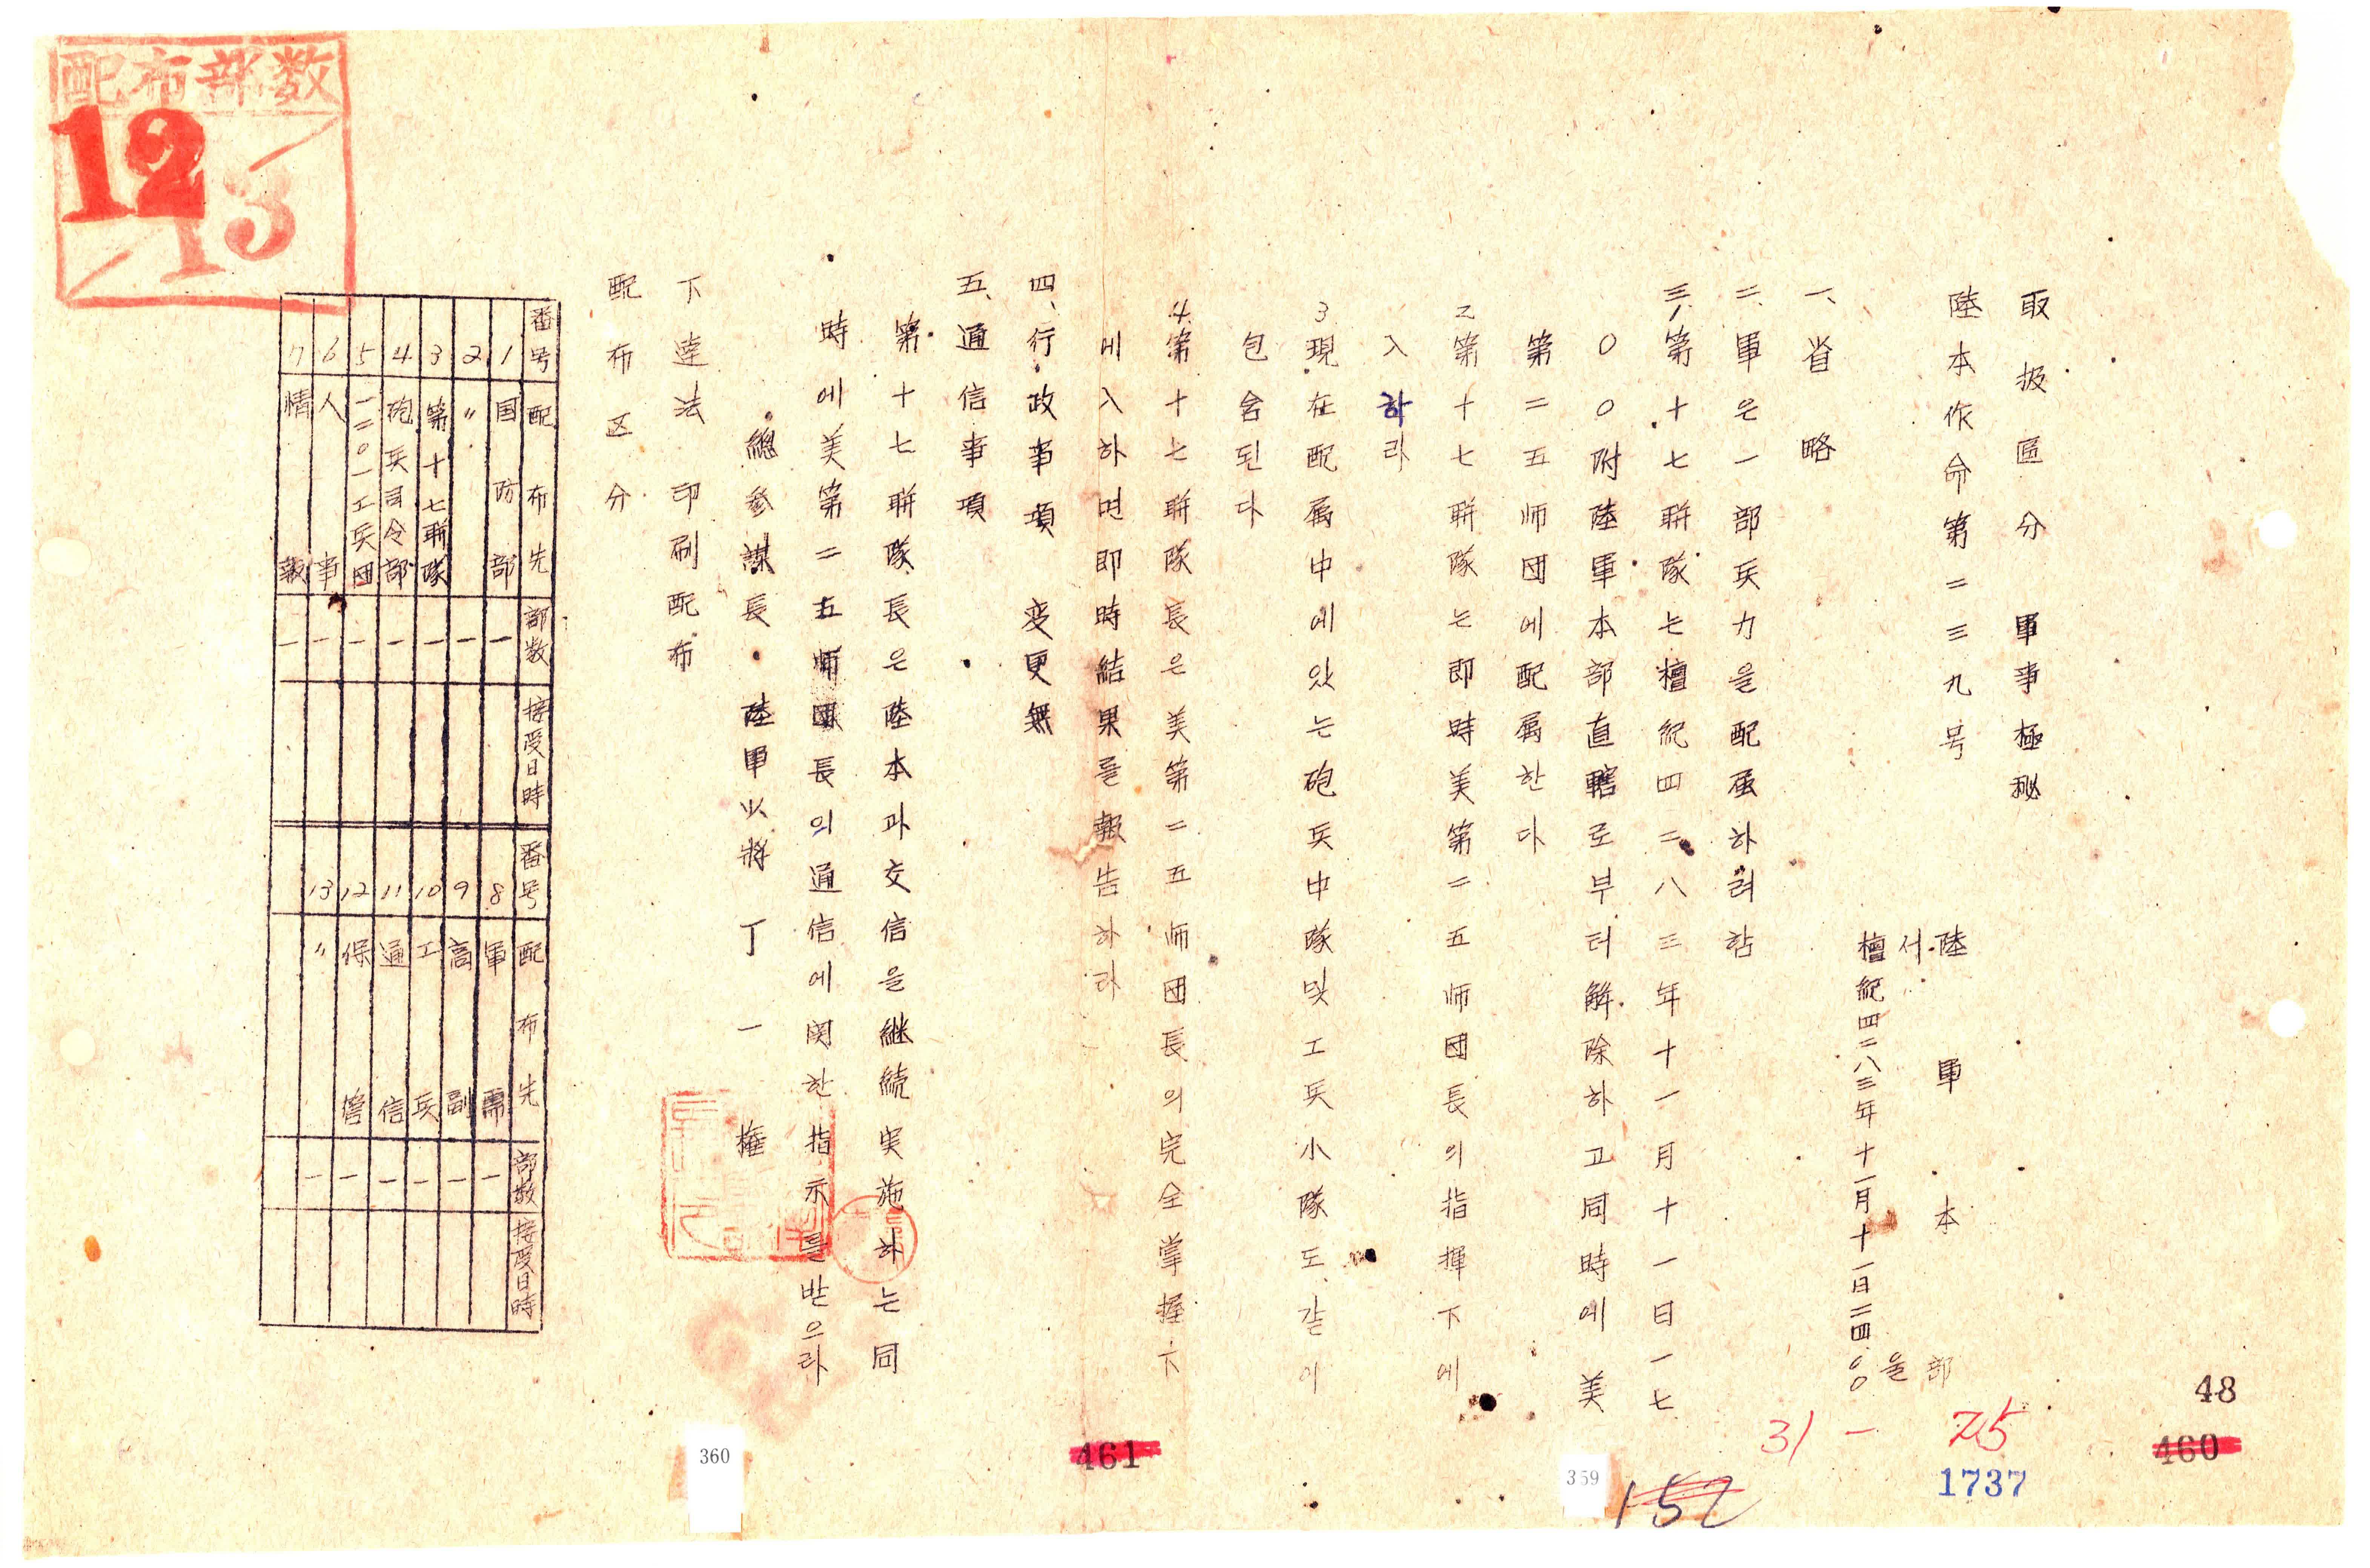 取扱區分 軍事極秘
陸本作命第二三九号
陸軍本部
서 을
檀紀四二八三年十一月十一日二四〇〇
一、省略
二、軍은一部兵力을配属하려함
三、1第十七聯隊는檀紀四二八三年十一月十一日一七
〇〇附陸軍本部直轄로부터解除하고同時에美
第二五师団에配属한다
2第十七聯隊는即時美第二五师団長의指揮下에
入하라
3現在配属中에있는砲兵中隊및工兵小隊도같이
包含된다
4.第十七聯隊長은美第二五师団長의完全掌握下
에入하면即時結果를報告하라
四、行政事項 変更無
五、通信事項
第十七聯隊長은陸本과交信을継続実施하는同
時에美第二五师團長의通信에関한指示를받으라
總参謀長 陸軍少将 丁一權
下達法 印刷配布
配布区分
番号 配布先 部数 接受日時 番号 配布先 部数 接受日時
1 国防部 一 8 軍需 一
2 〃 一 9 高副 一
3 第十七聯隊 一 10 工兵 一
4 砲兵司令部 一 11 通信 一
5 一二〇一工兵団 一 12 保管 一
6 人事 一 13 〃 一
7 情報 一
配布部数
12
13
48
460
31 - 75
1737
152
359
461
360